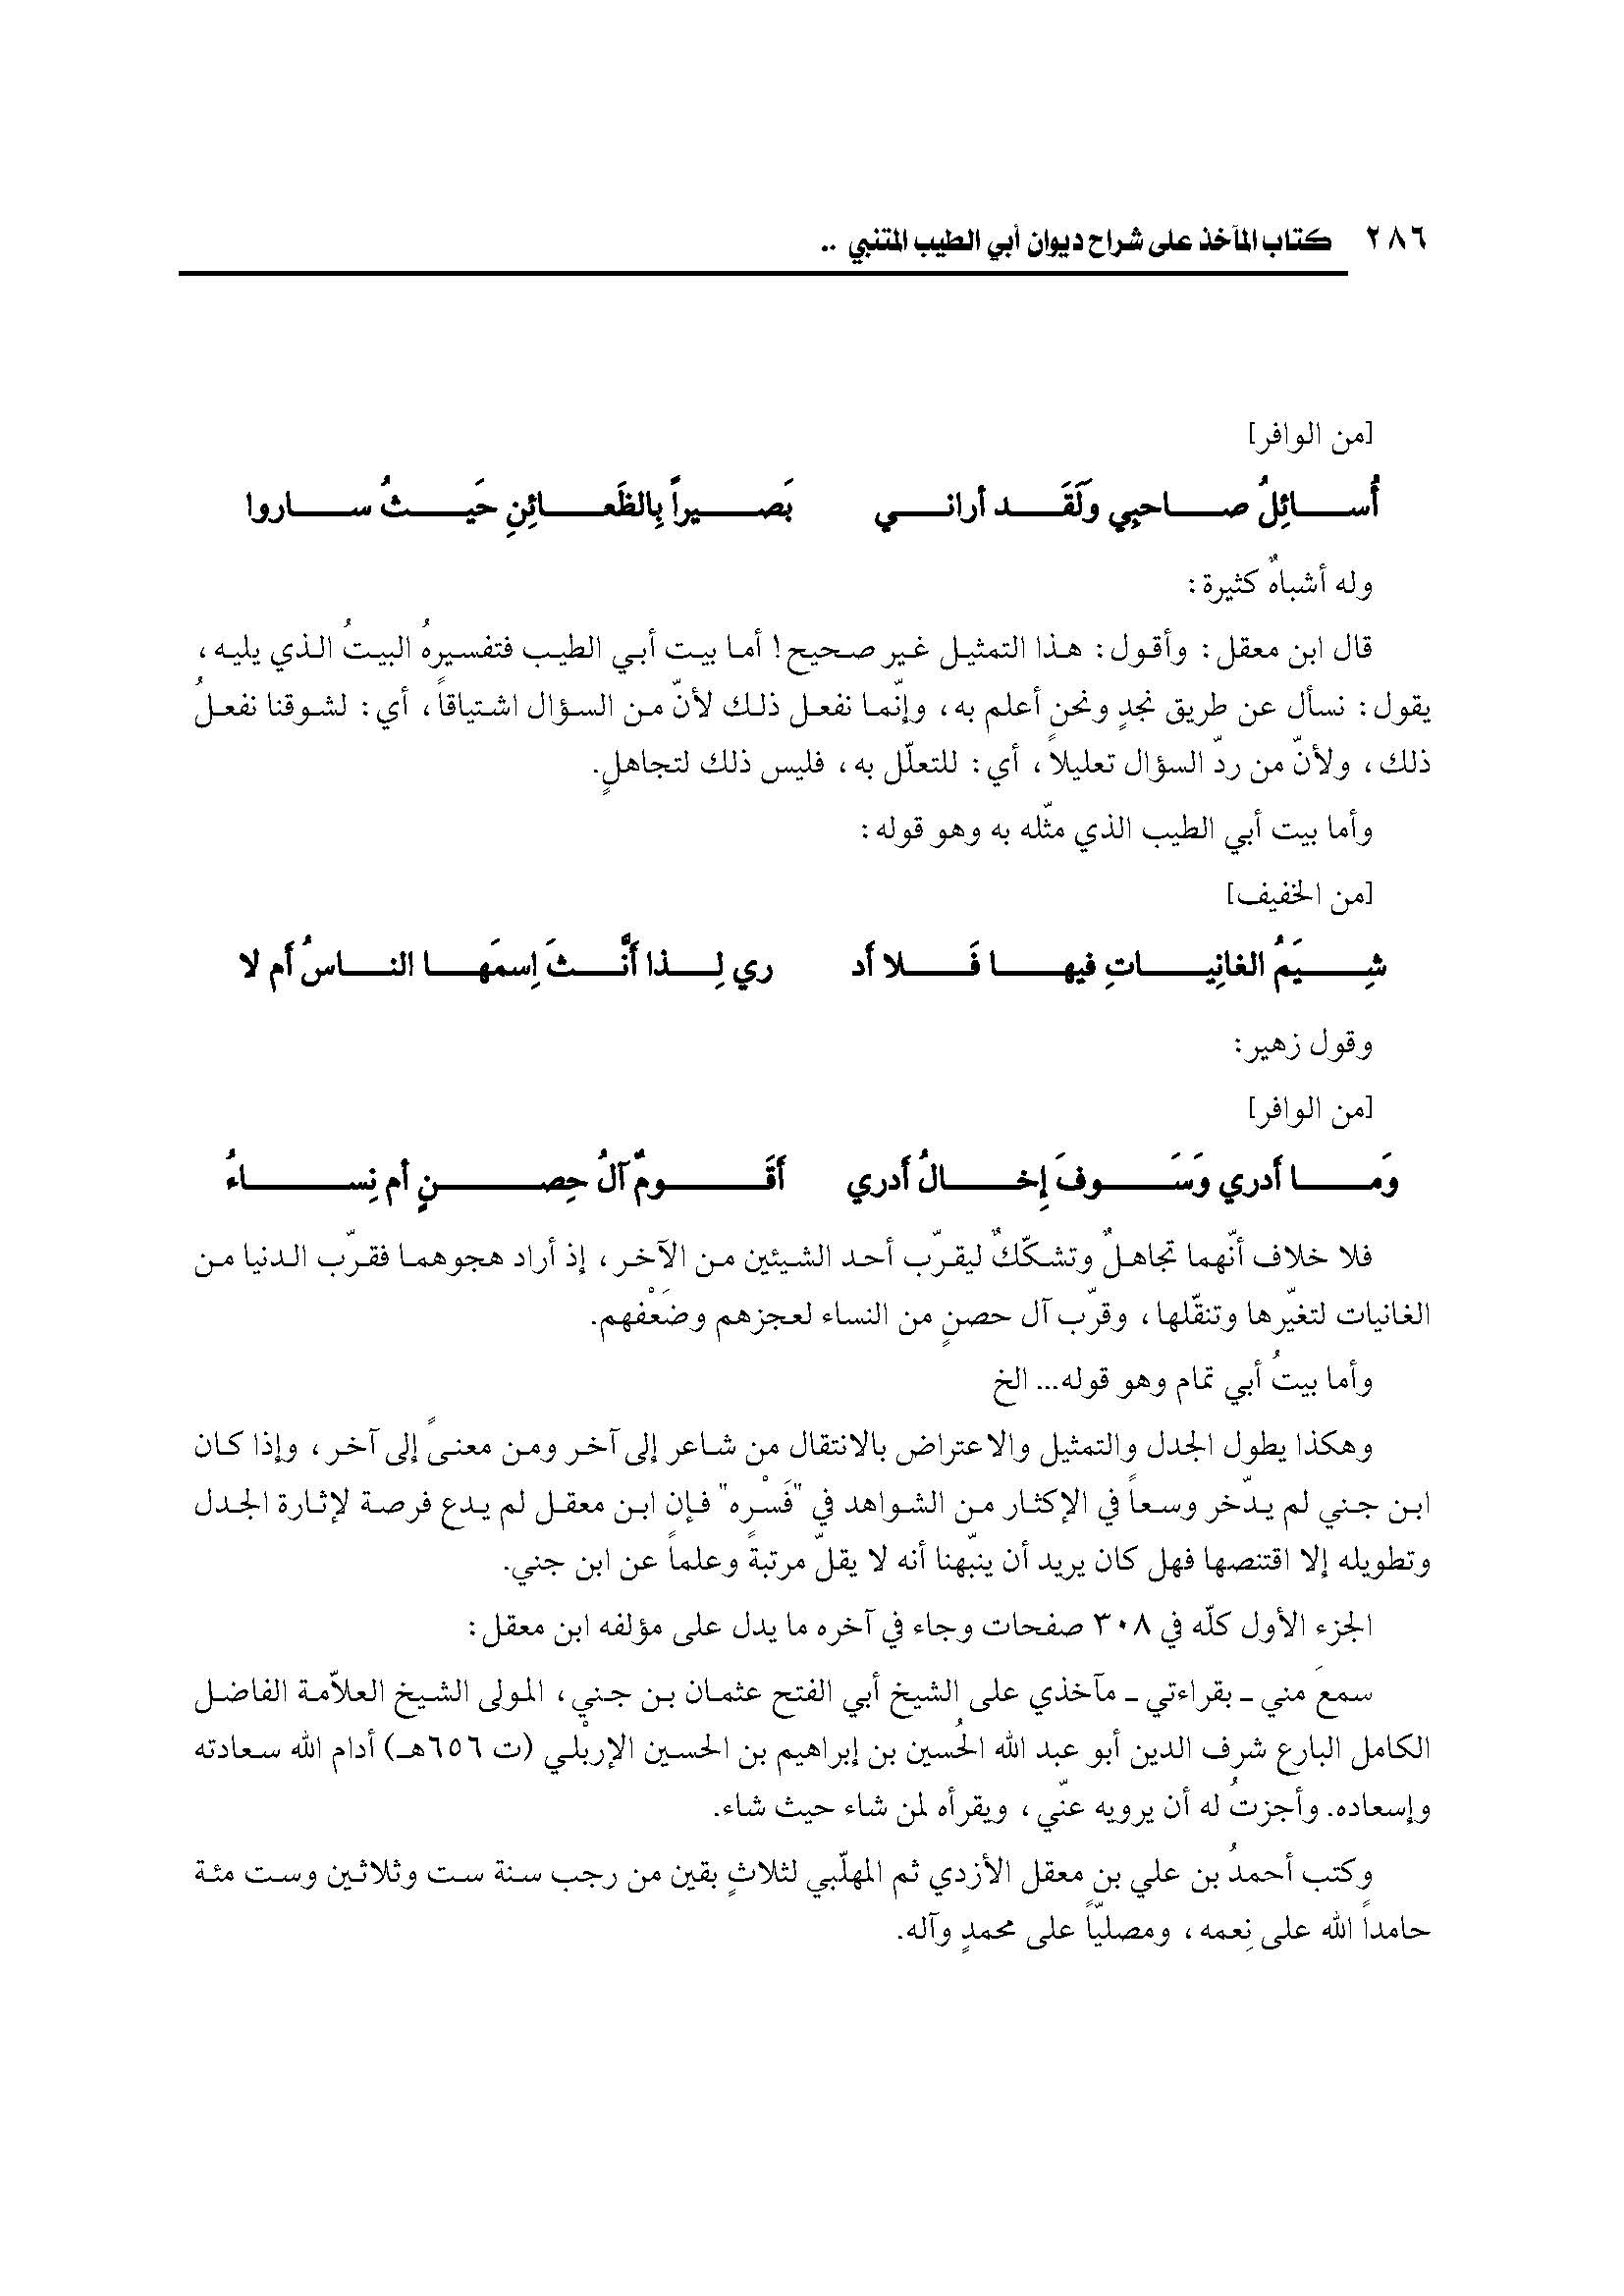 ٢٨٦ كتاب المآخذ على شراح ديوان أبي الطيب المتنبي ..
[من الوافر]
أُسائِلُ صاحبِي ولَقَد أراني بَصيراً بِالظَعائِنِ حَيثُ ساروا
وله أشباهٌ كثيرة:
قال ابن معقل: وأقول: هذا التمثيل غير صحيح! أما بيت أبي الطيب فتفسيرهُ البيتُ الذي يليه،
يقول: نسأل عن طريق نجدٍ ونحن أعلم به، وإنّما نفعل ذلك لأنّ من السؤال اشتياقاً، أي: لشوقنا نفعلُ
ذلك، ولأنّ من ردّ السؤال تعليلاً، أي: للتعلّل به، فليس ذلك لتجاهلٍ.
وأما بيت أبي الطيب الذي مثّله به وهو قوله:
[من الخفيف]
شِيَمُ الغانِياتِ فيها فَلا أَد ري لِذا أَنَّثَ اِسمَها الناسُ أَم لا
وقول زهير:
[من الوافر]
وَما أَدري وَسَوفَ إِخالُ أَدري أَقَومٌ آلُ حِصنٍ أم نِساءُ
فلا خلاف أنّهما تجاهلٌ وتشكّكٌ ليقرّب أحد الشيئين من الآخر، إذ أراد هجوهما فقرّب الدنيا من
الغانيات لتغيّرها وتنقّلها، وقرّب آل حصنٍ من النساء لعجزهم وضَعْفهم.
وأما بيتُ أبي تمام وهو قوله... الخ
وهكذا يطول الجدل والتمثيل والاعتراض بالانتقال من شاعر إلى آخر ومن معنىً إلى آخر، وإذا كان
ابن جني لم يدّخر وسعاً في الإكثار من الشواهد في "فَسْره" فإن ابن معقل لم يدع فرصة لإثارة الجدل
وتطويله إلا اقتنصها فهل كان يريد أن ينبّهنا أنه لا يقلّ مرتبةً وعلماً عن ابن جني.
الجزء الأول كلّه في ٣٠٨ صفحات وجاء في آخره ما يدل على مؤلفه ابن معقل:
سمعَ مني ـ بقراءتي ـ مآخذي على الشيخ أبي الفتح عثمان بن جني، المولى الشيخ العلاّمة الفاضل
الكامل البارع شرف الدين أبو عبد الله الحُسين بن إبراهيم بن الحسين الإربْلي (ت ٦٥٦هـ) أدام الله سعادته
وإسعاده. وأجزتُ له أن يرويه عنّي، ويقرأه لمن شاء حيث شاء.
وكتب أحمدُ بن علي بن معقل الأزدي ثم المهلّبي لثلاثٍ بقين من رجب سنة ست وثلاثين وست مئة
حامداً الله على نِعمه، ومصليّاً على محمدٍ وآله.